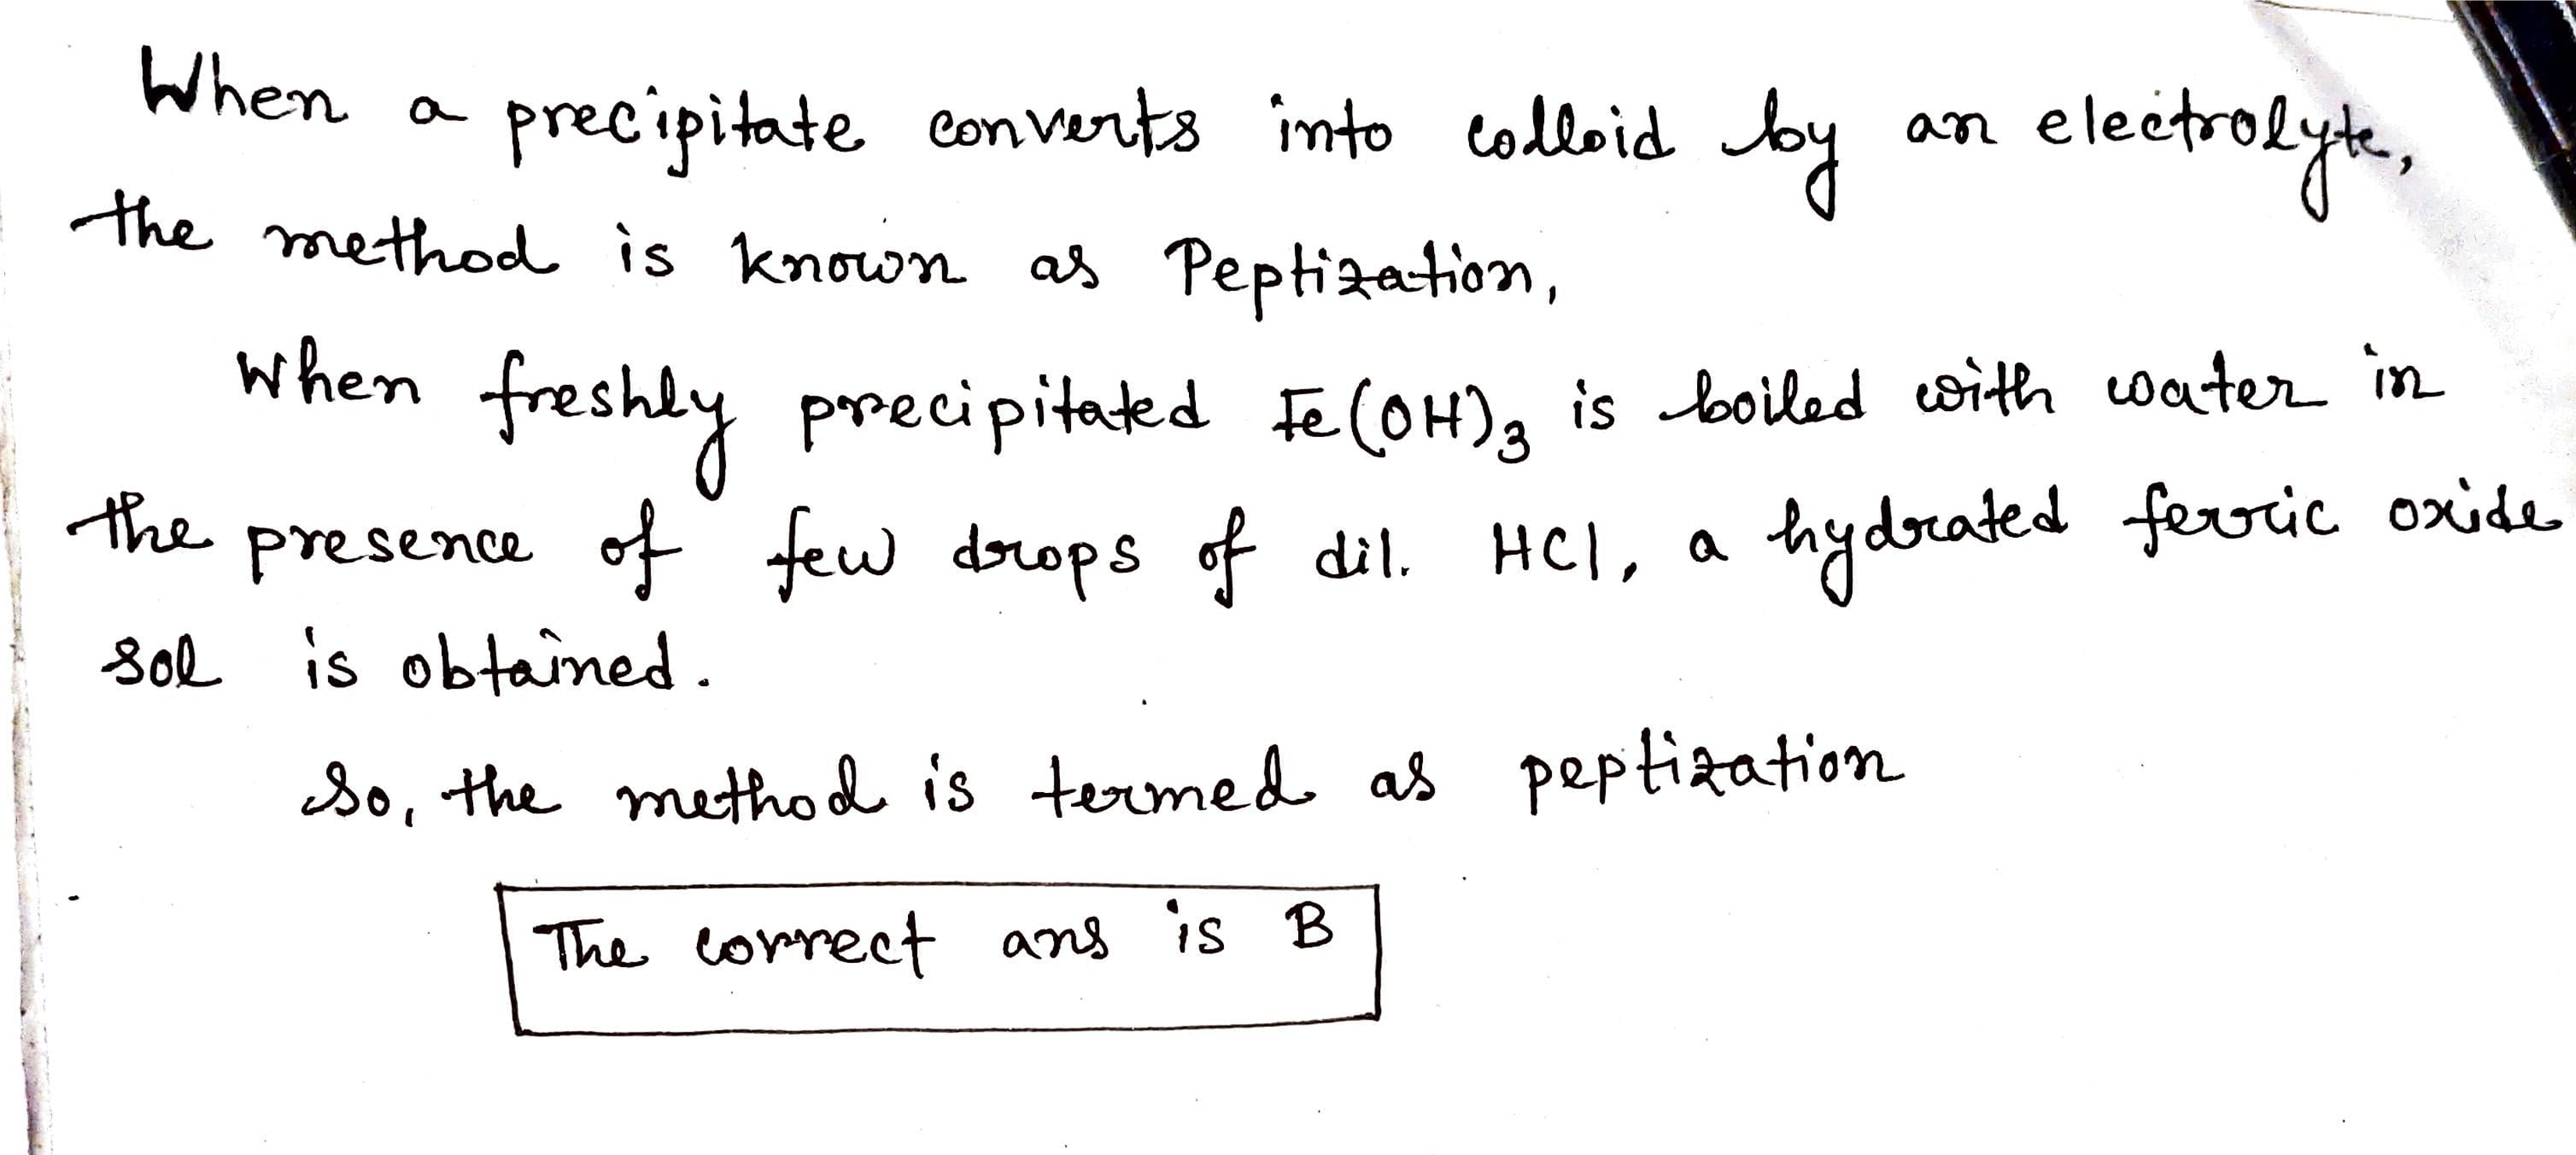 When a precipitate converts into colloid by an electrolyte,
the method is known as Peptization,
When freshly precipitated Fe(OH)₃ is boiled with water in
the presence of few drops of dil. HCl, a hydrated ferric oxide
sol is obtained.
So, the method is termed as peptization
The correct ans is B